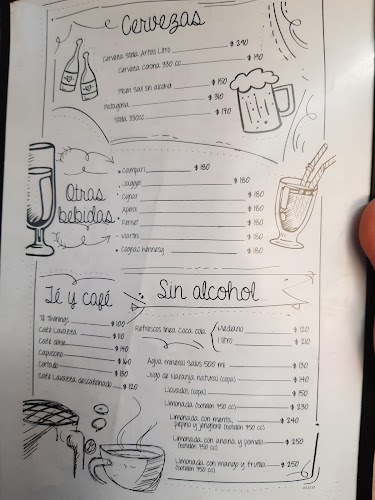 Cervezas
Cerveza Stella Artois Litro $ 290
Cerveza Corona 330 cc $ 190
Pilsen Sail sin alcohol $ 150
Patagonia $ 310
Stella 330cc $ 190
Otras bebidas
Campari $ 180
Jagger $ 180
Cynar $ 180
Aperol $ 180
Fernet $ 180
Martini $ 180
Cognac Hennesy $ 180
Té y café
Té Twinings $ 100
Café Lavazza $ 110
Café doble $ 140
Capuccino $ 160
Cortado $ 130
Café Lavazza descafeinado $ 120
Sin alcohol
Refrescos linea coca cola Mediano $ 120
1 litro $ 210
Agua mineral Salus 500 ml $ 130
Jugo de Naranja natural (copa) $ 140
Licuados (copa) $ 150
Limonada (botellon 950 cc) $ 230
Limonada con menta, $ 240
pepino y jengibre (botellon 950 cc)
Limonada con ananá y pomelo $ 250
(botellon 950 cc)
Limonada con mango y frutilla $ 250
(botellon 950 cc)